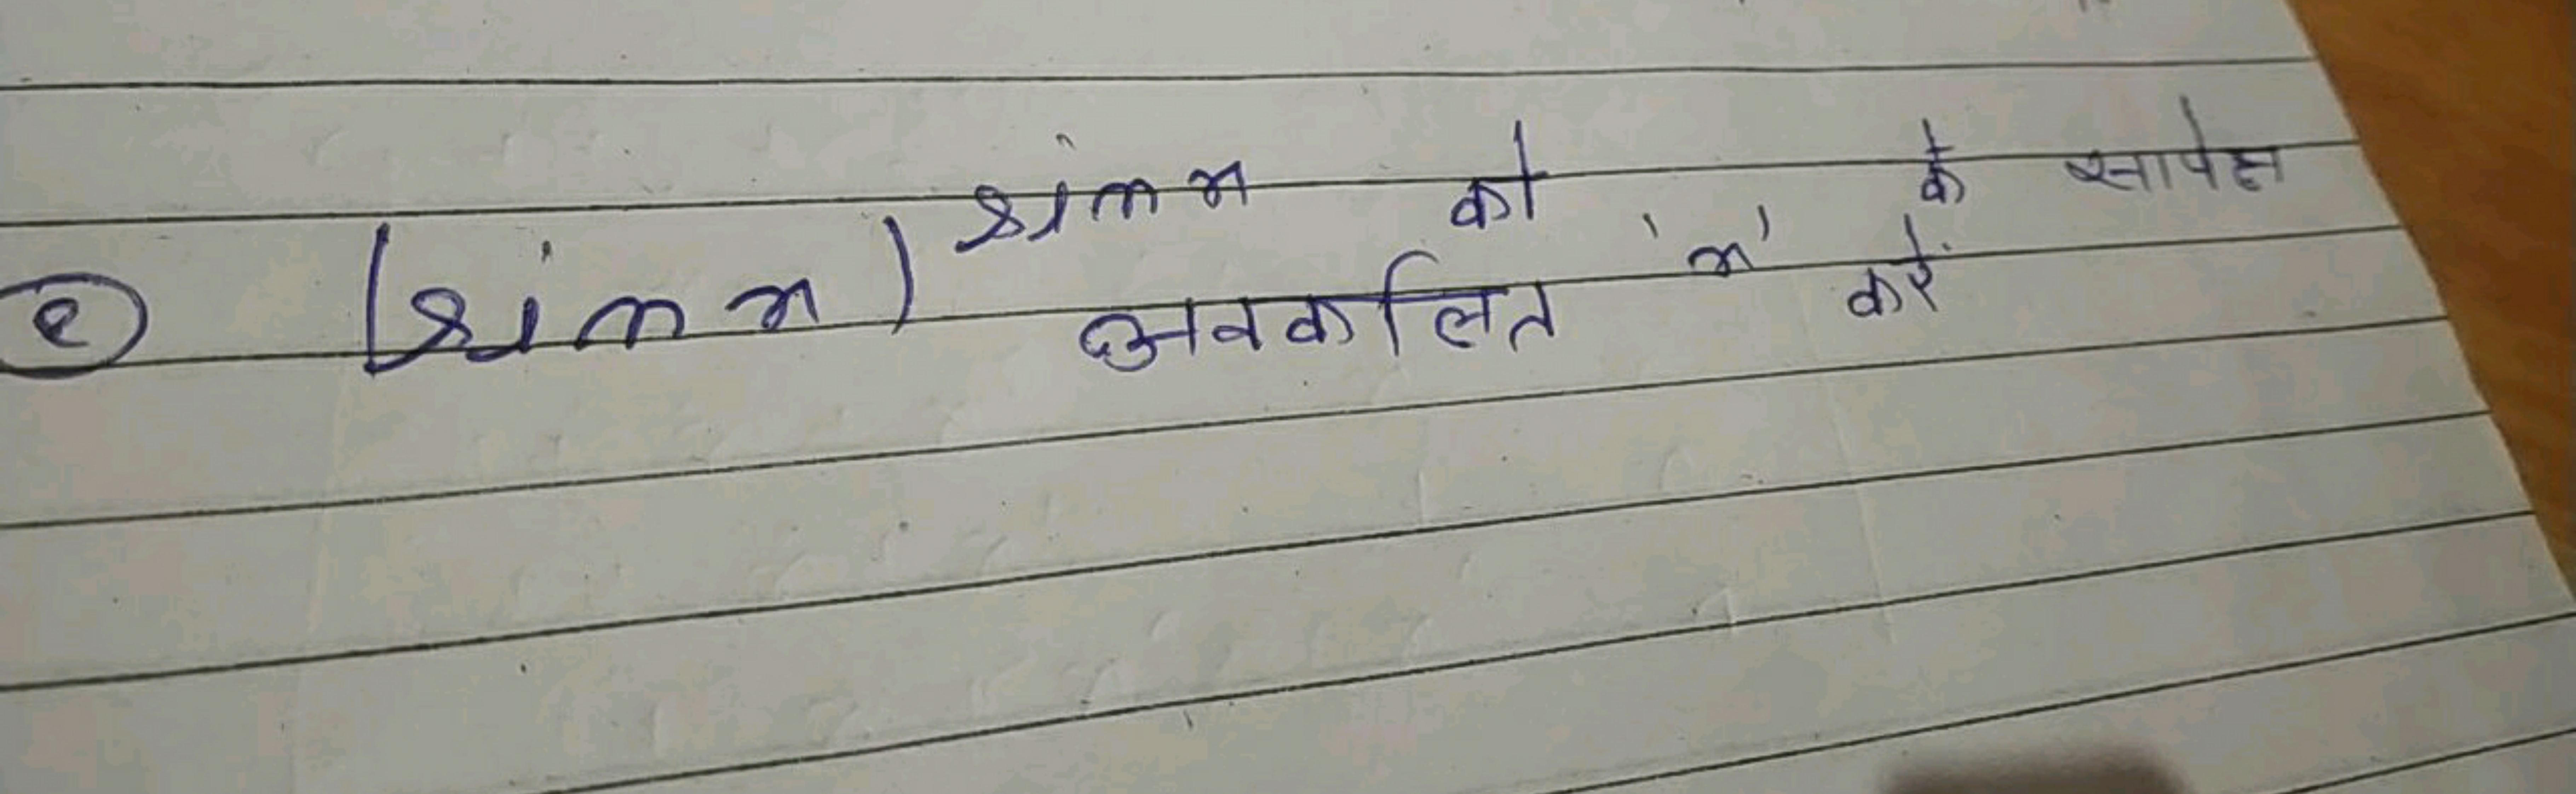 ② (sin x)^sin x को 'x' के सापेक्ष
अवकलित करें